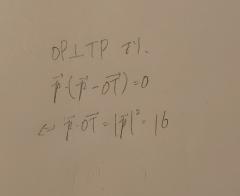 OP⊥TP より.
p⃗・(p⃗-OT⃗)=0
⇔ p⃗・OT⃗=|p⃗|²=16